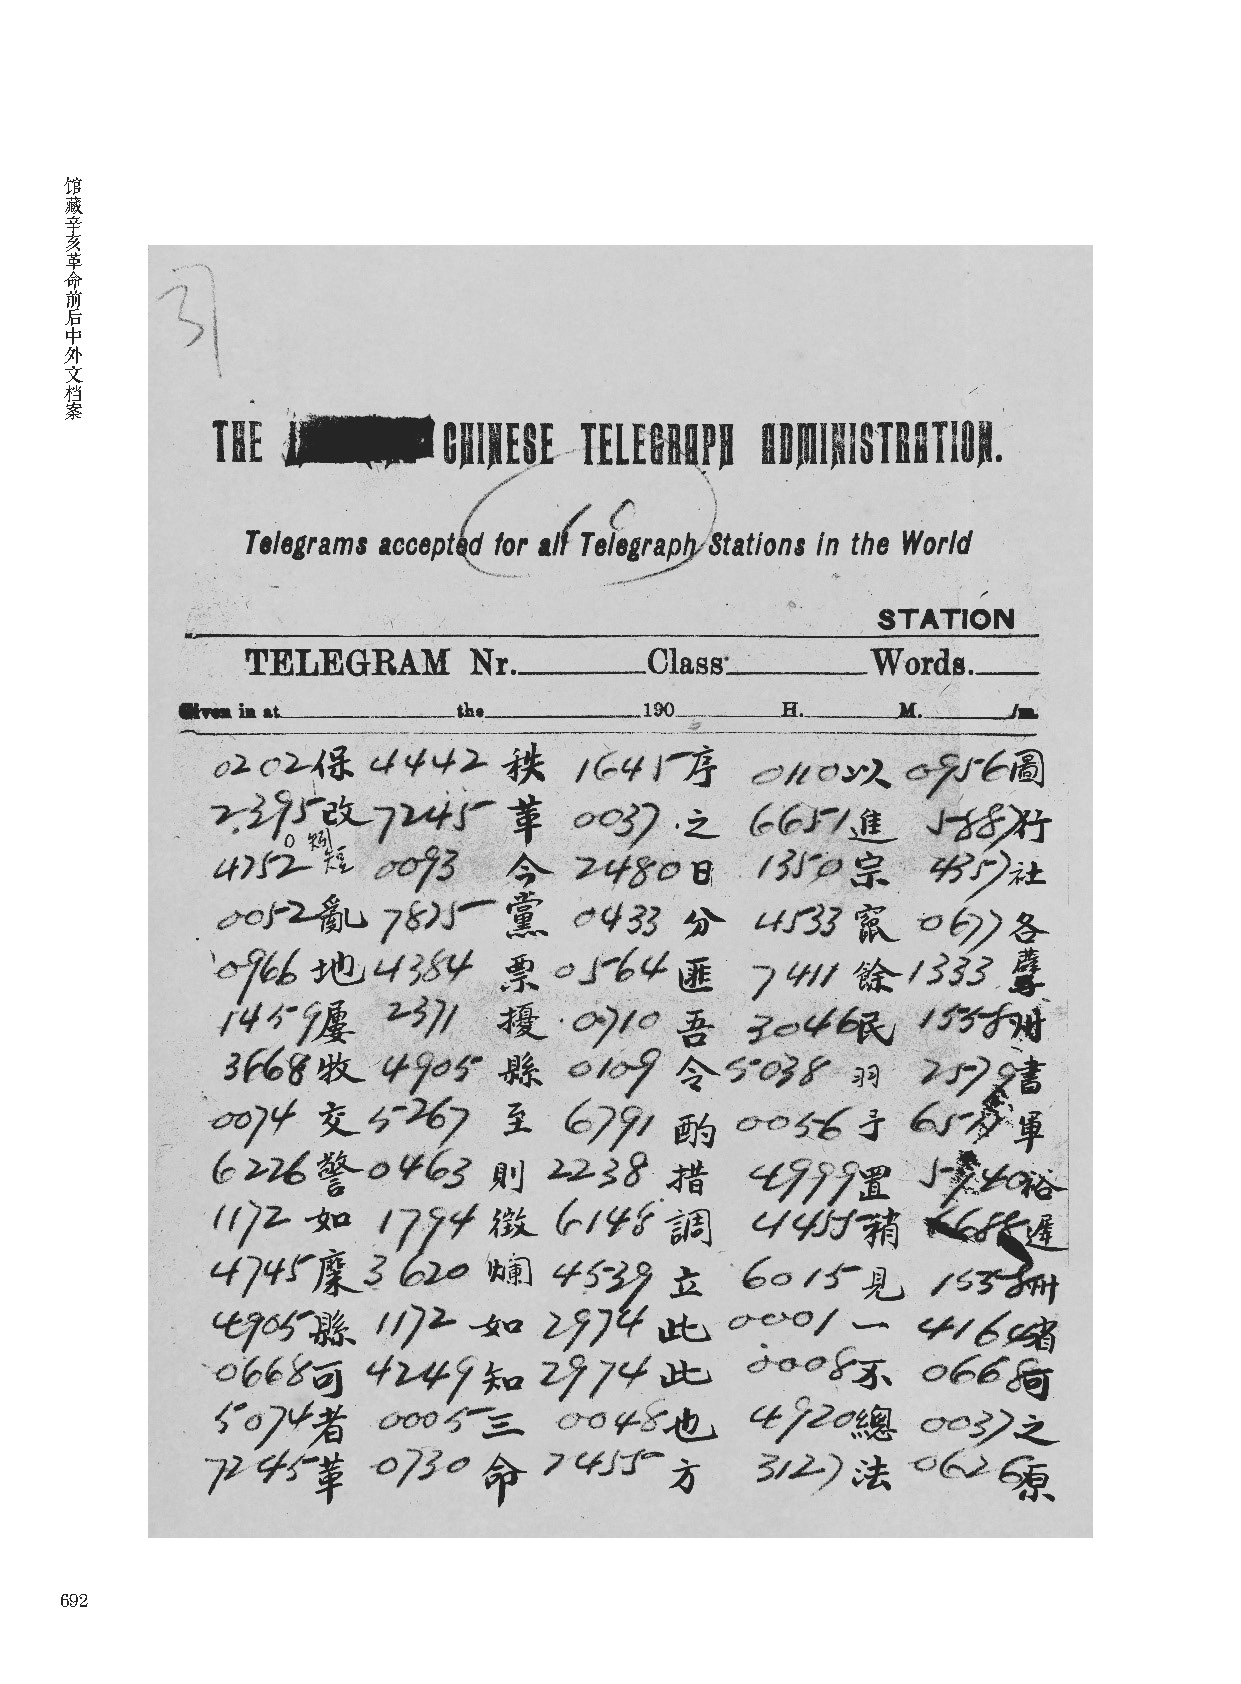 馆藏辛亥革命前后中外文档案
31
THE CHINESE TELEGRAPH ADMINISTRATION.
10
Telegrams accepted for all Telegraph Stations in the World
STATION
TELEGRAM Nr. Class Words.
Given in at the 190 H. M. /m.
0202保 4442秩 1645序 0110以 0956圖
2395改 7245革 0037之 6651進 5887行
4252短 0093今 2480日 1350宗 4357社
0052亂 7825黨 0433分 4533竄 0677各
0966地 4384票 0564匪 7411餘 1333孽
1459屢 2371擾 0710吾 3046民 1558册
3668牧 4905縣 0109令 5038羽 2579書
0074交 5267至 6791酌 0056予 軍
6226警 0463則 2238措 4999置 5940裕
1172如 1794徵 6148調 4455稍 遲
4745糜 3620爛 4539立 6015見 1558冊
4905縣 1172如 2974此 0001一 4164省
0668可 4249知 2974此 0008不 0668可
5074者 0005三 0048也 4920總 0037之
7245革 0730命 2455方 3127法 0626原
692